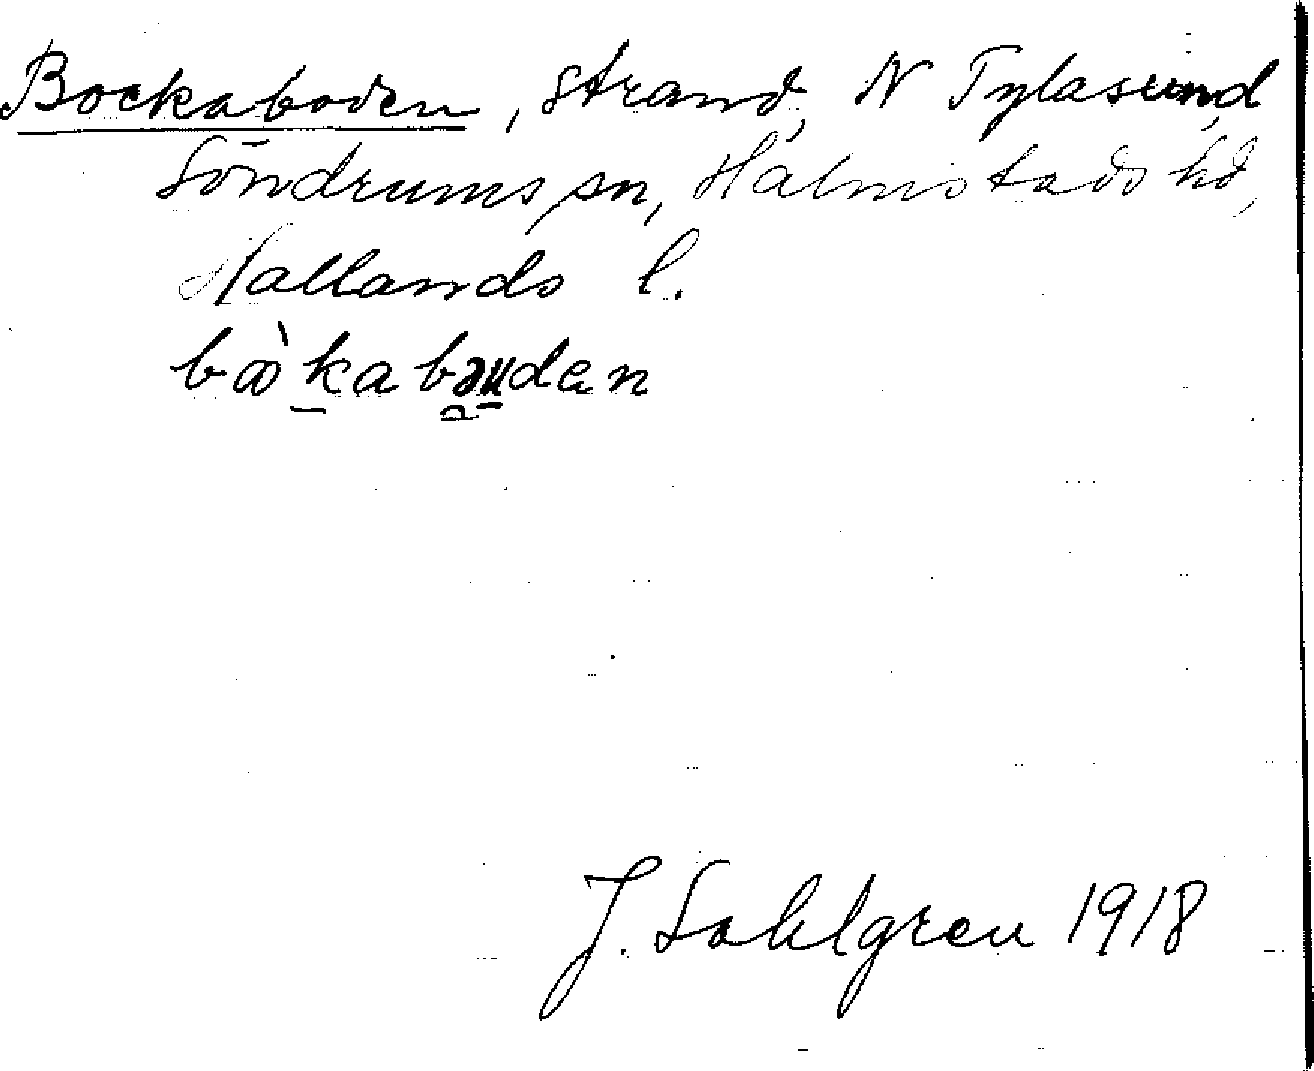 Bockaboden, strand, N Tylasund,
Söndrums sn, Halmstads hd,
Hallands l.
J. Sahlgren 1918